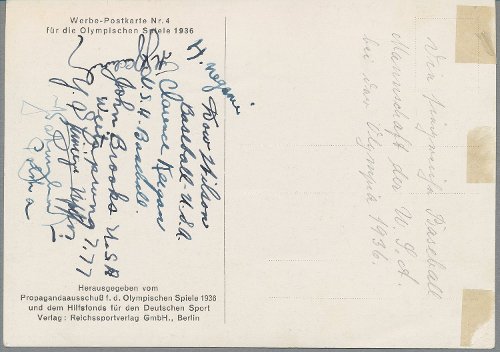 Werbe-Postkarte Nr. 4
für die Olympischen Spiele 1936
H. Negami
Dow Wilson
Baseball - U.S.A.
Clarence Keegan
U.S.A. Baseball
John Brooks USA
Weitsprung 7.77
Herausgegeben vom
Propagandaausschuß f. d. Olympischen Spiele 1936
und dem Hilfsfonds für den Deutschen Sport
Verlag: Reichssportverlag GmbH., Berlin
Baseball
Mannschaft der U.S.A.
bei der Olympia 1936.